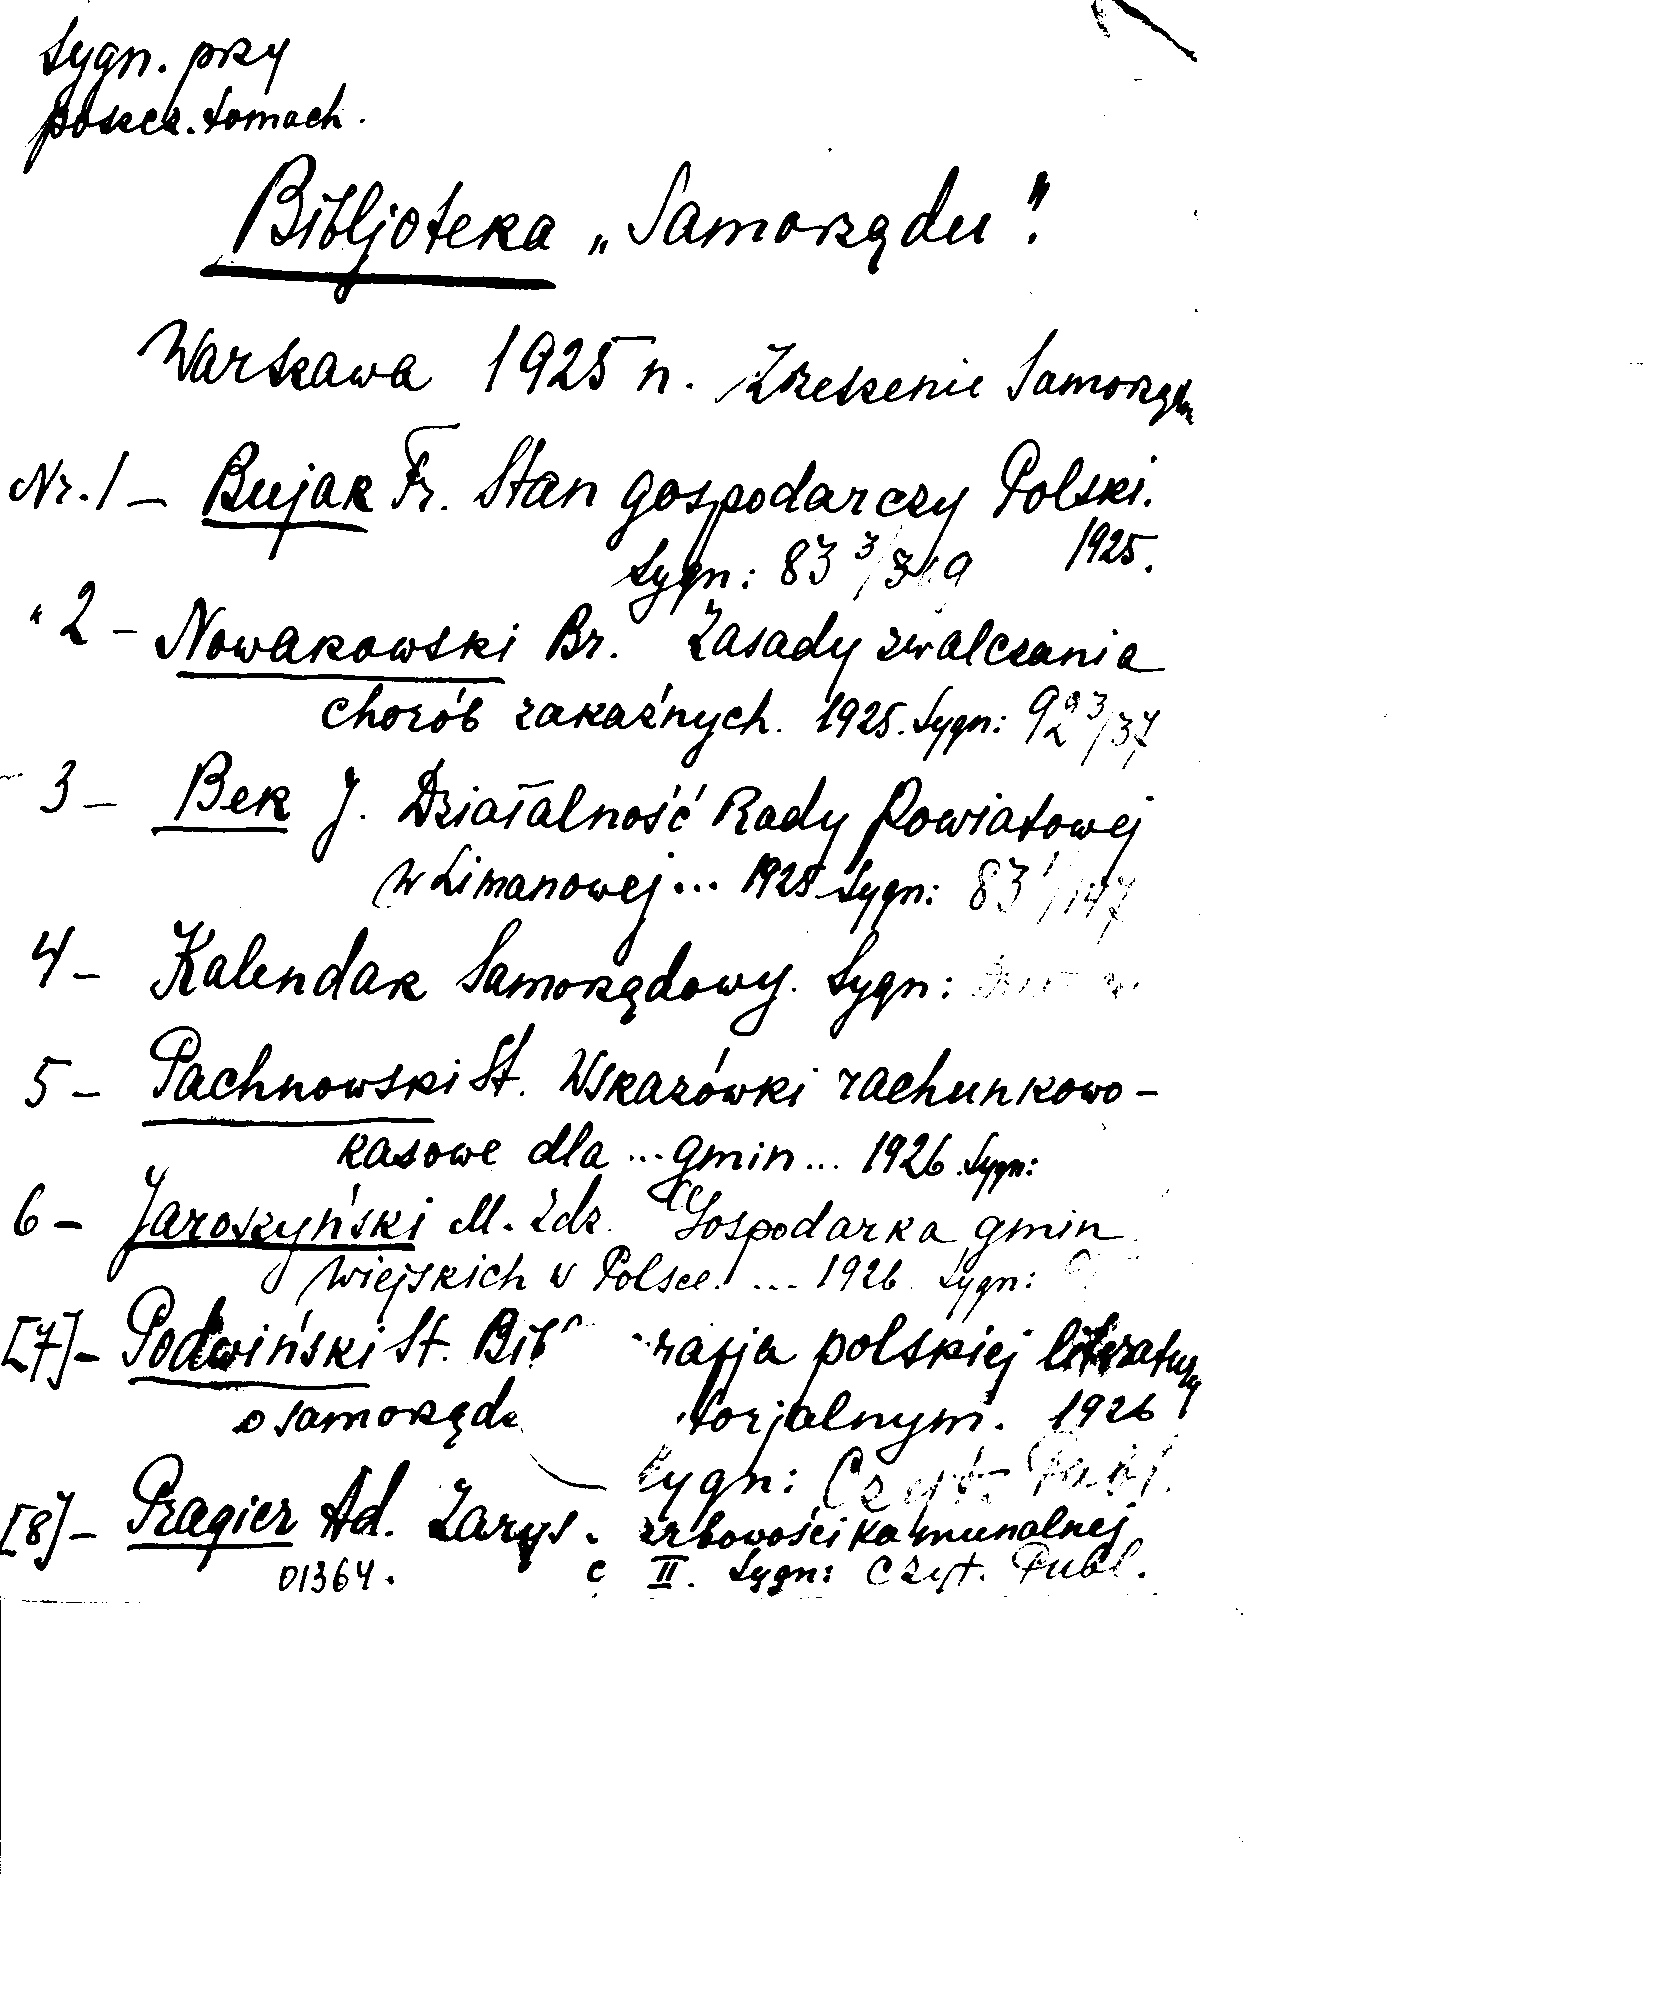 Sygn. przy
poszcz. tomach.
Bibljoteka „Samorządu".
Warszawa 1925 n. Zrzeszenie Samorządu
Nr. 1 — Bujak Fr. Stan gospodarczy Polski.
Sygn: 83 3/319 1925.
" 2 — Nowakowski Br. Zasady zwalczania
chorób zakaźnych. 1925. Sygn: 3/37
3 — Bek J. Działalność Rady Powiatowej
w Limanowej... 1925 Sygn: 83 1/147
4 — Kalendarz Samorządowy. Sygn:
5 — Pachnowski St. Wskazówki rachunkowo-
kasowe dla ... gmin ... 1926. Sygn:
6 — Jaroszyński M. Zdz. Gospodarka gmin
wiejskich w Polsce. ... 1926 Sygn:
[7] — Podwiński St. Bib rafja polskiej literatury
o samorządz torjalnym. 1926
Sygn: Czyt. Publ.
[8] — Pragier Ad. Zarys. karbowości komunalnej
01364. c II. Sygn: Czyt. Publ.